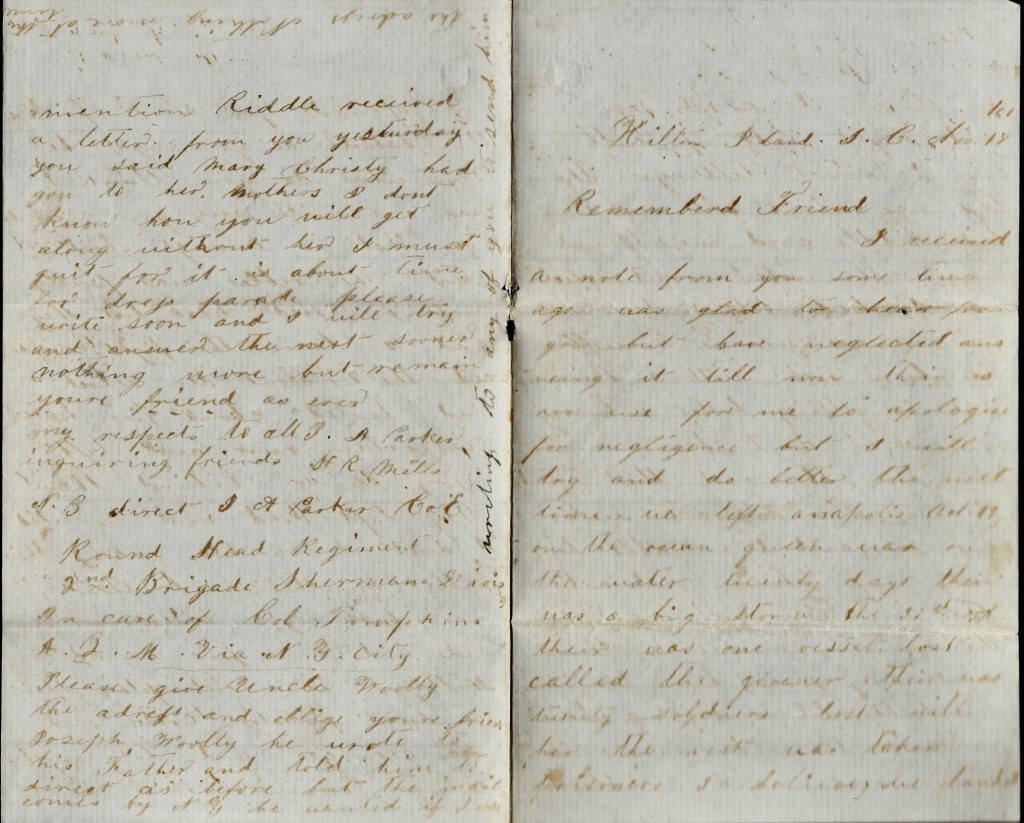 161
Hilton I Land. S. C. Nov. 18
Rememberd Friend
I received
a note from you some time
ago was glad to hear from
you but have neglected ans
wering it till now their is
no use for me to apologise
for negligence but I will
try and do better the next
time we left anapolis Oct. 19
on the ocean queen was on
the water twenty days their
was a big storm the 31st
their was one vessel lost
called the their was
twenty soldners lost with
her the rest was taken
prisoners I believe we landed
mention Riddle received
a letter from you yesturday
you said Mary Christy had
gon to her Mothers I dont
know how you will get
along without her I must
quit for it is about time
for dres parade please
write soon and I will try
and answer the next sooner
nothing more but remain
youre friend as ever
my respects to all J. A Parker
inquiring friends H R Mills
N. B direct J A Parker Co E
Round Head Regiment
2nd Brigade Shermans Divis
in care of Col Tompkins
A. Q. M. Via. N. Y. City.
Please give Uncle Woolly
the adress and oblige youre frien
Joseph Woolly he wrote to
his Father and told him to
direct as before but the male
comes by N Y he wanted if I was
writing to any of you to send him
the adress Nothing more at this
time